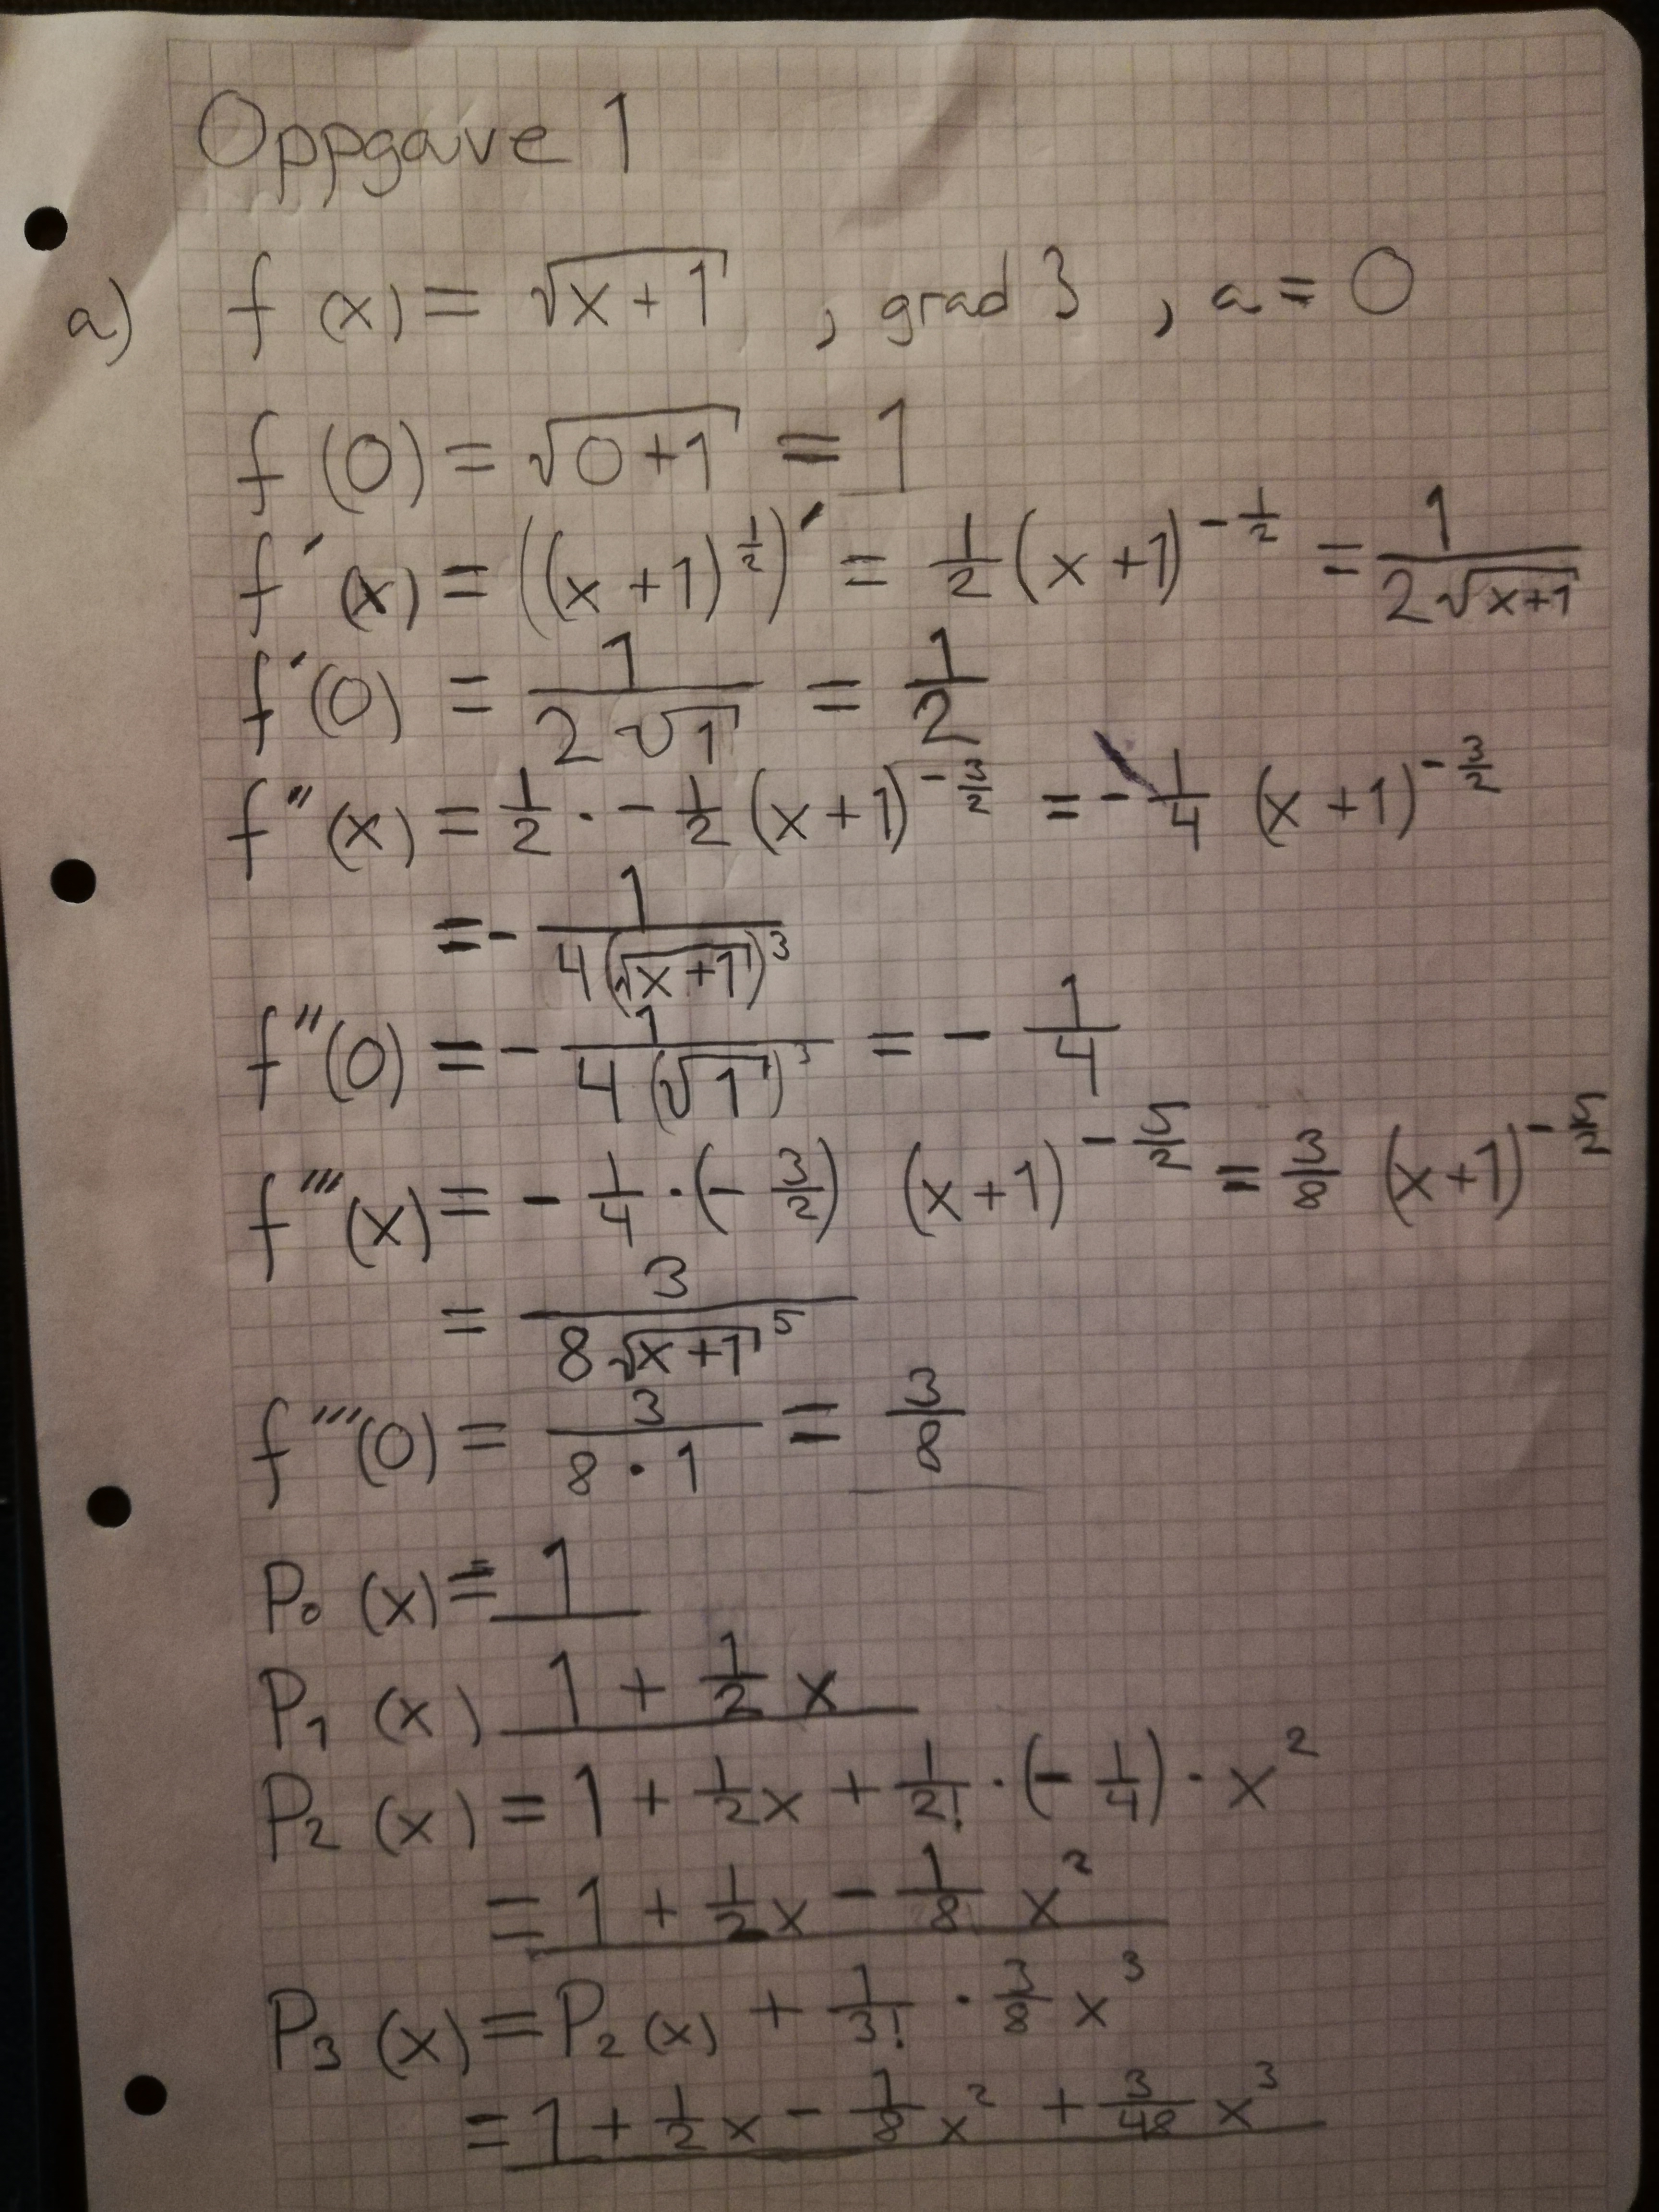 Oppgave 1
a) f(x) = √(x+1) , grad 3 , a = 0
f(0) = √(0+1) = 1
f′(x) = ((x+1)^(1/2))′ = 1/2 (x+1)^(-1/2) = 1/(2√(x+1))
f′(0) = 1/(2√1) = 1/2
f″(x) = 1/2 · - 1/2 (x+1)^(-3/2) = - 1/4 (x+1)^(-3/2)
= - 1/(4(√(x+1))^3)
f″(0) = - 1/(4(√1)^3) = - 1/4
f‴(x) = - 1/4 · (- 3/2) (x+1)^(-5/2) = 3/8 (x+1)^(-5/2)
= 3/(8√(x+1)^5)
f‴(0) = 3/(8·1) = 3/8
P₀(x) = 1
P₁(x) 1 + 1/2 x
P₂(x) = 1 + 1/2 x + 1/2! · (- 1/4) · x²
= 1 + 1/2 x - 1/8 x²
P₃(x) = P₂(x) + 1/3! · 3/8 x³
= 1 + 1/2 x - 1/8 x² + 3/48 x³